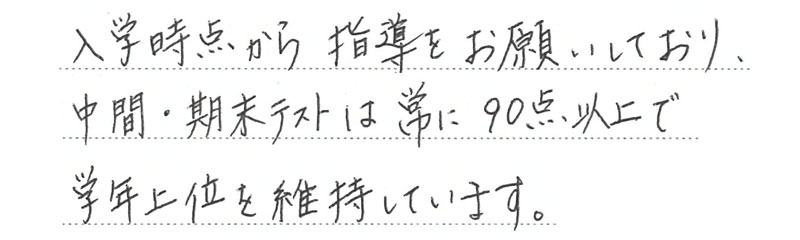 入学時点から指導をお願いしており、
中間・期末テストは常に90点以上で
学年上位を維持しています。